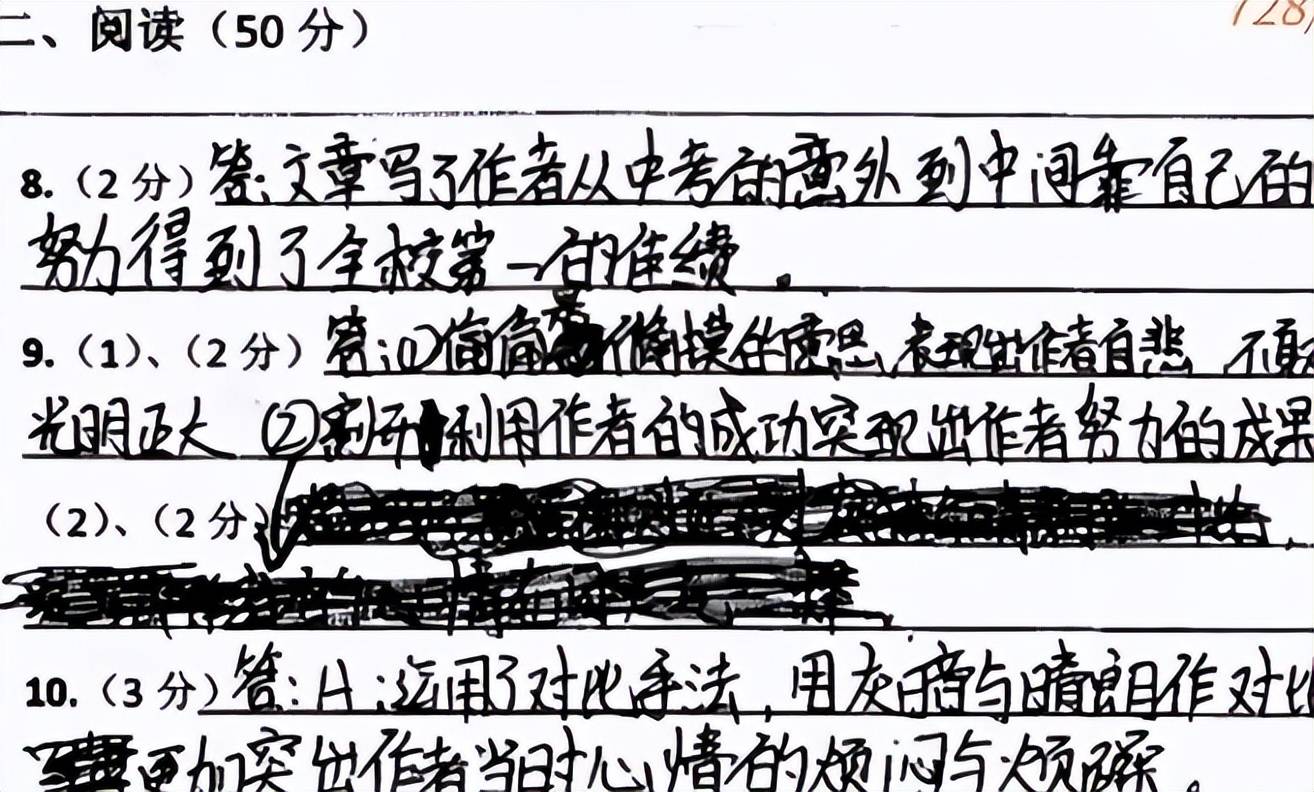 二、阅读（50 分）
128
8.（2 分）答:文章写了作者从中考的意外到中间靠自己的
努力得到了全校第一的佳绩。
9.（1）、（2 分）答:①偷偷是偷摸的意思,表现出作者自悲 不敢
光明正大 ②利用作者的成功突现出作者努力的成果
（2）、（2 分）
10.（3 分）答:A:运用了对比手法,用灰暗与晴朗作对比
更加突出作者当时心情的烦闷与烦躁。